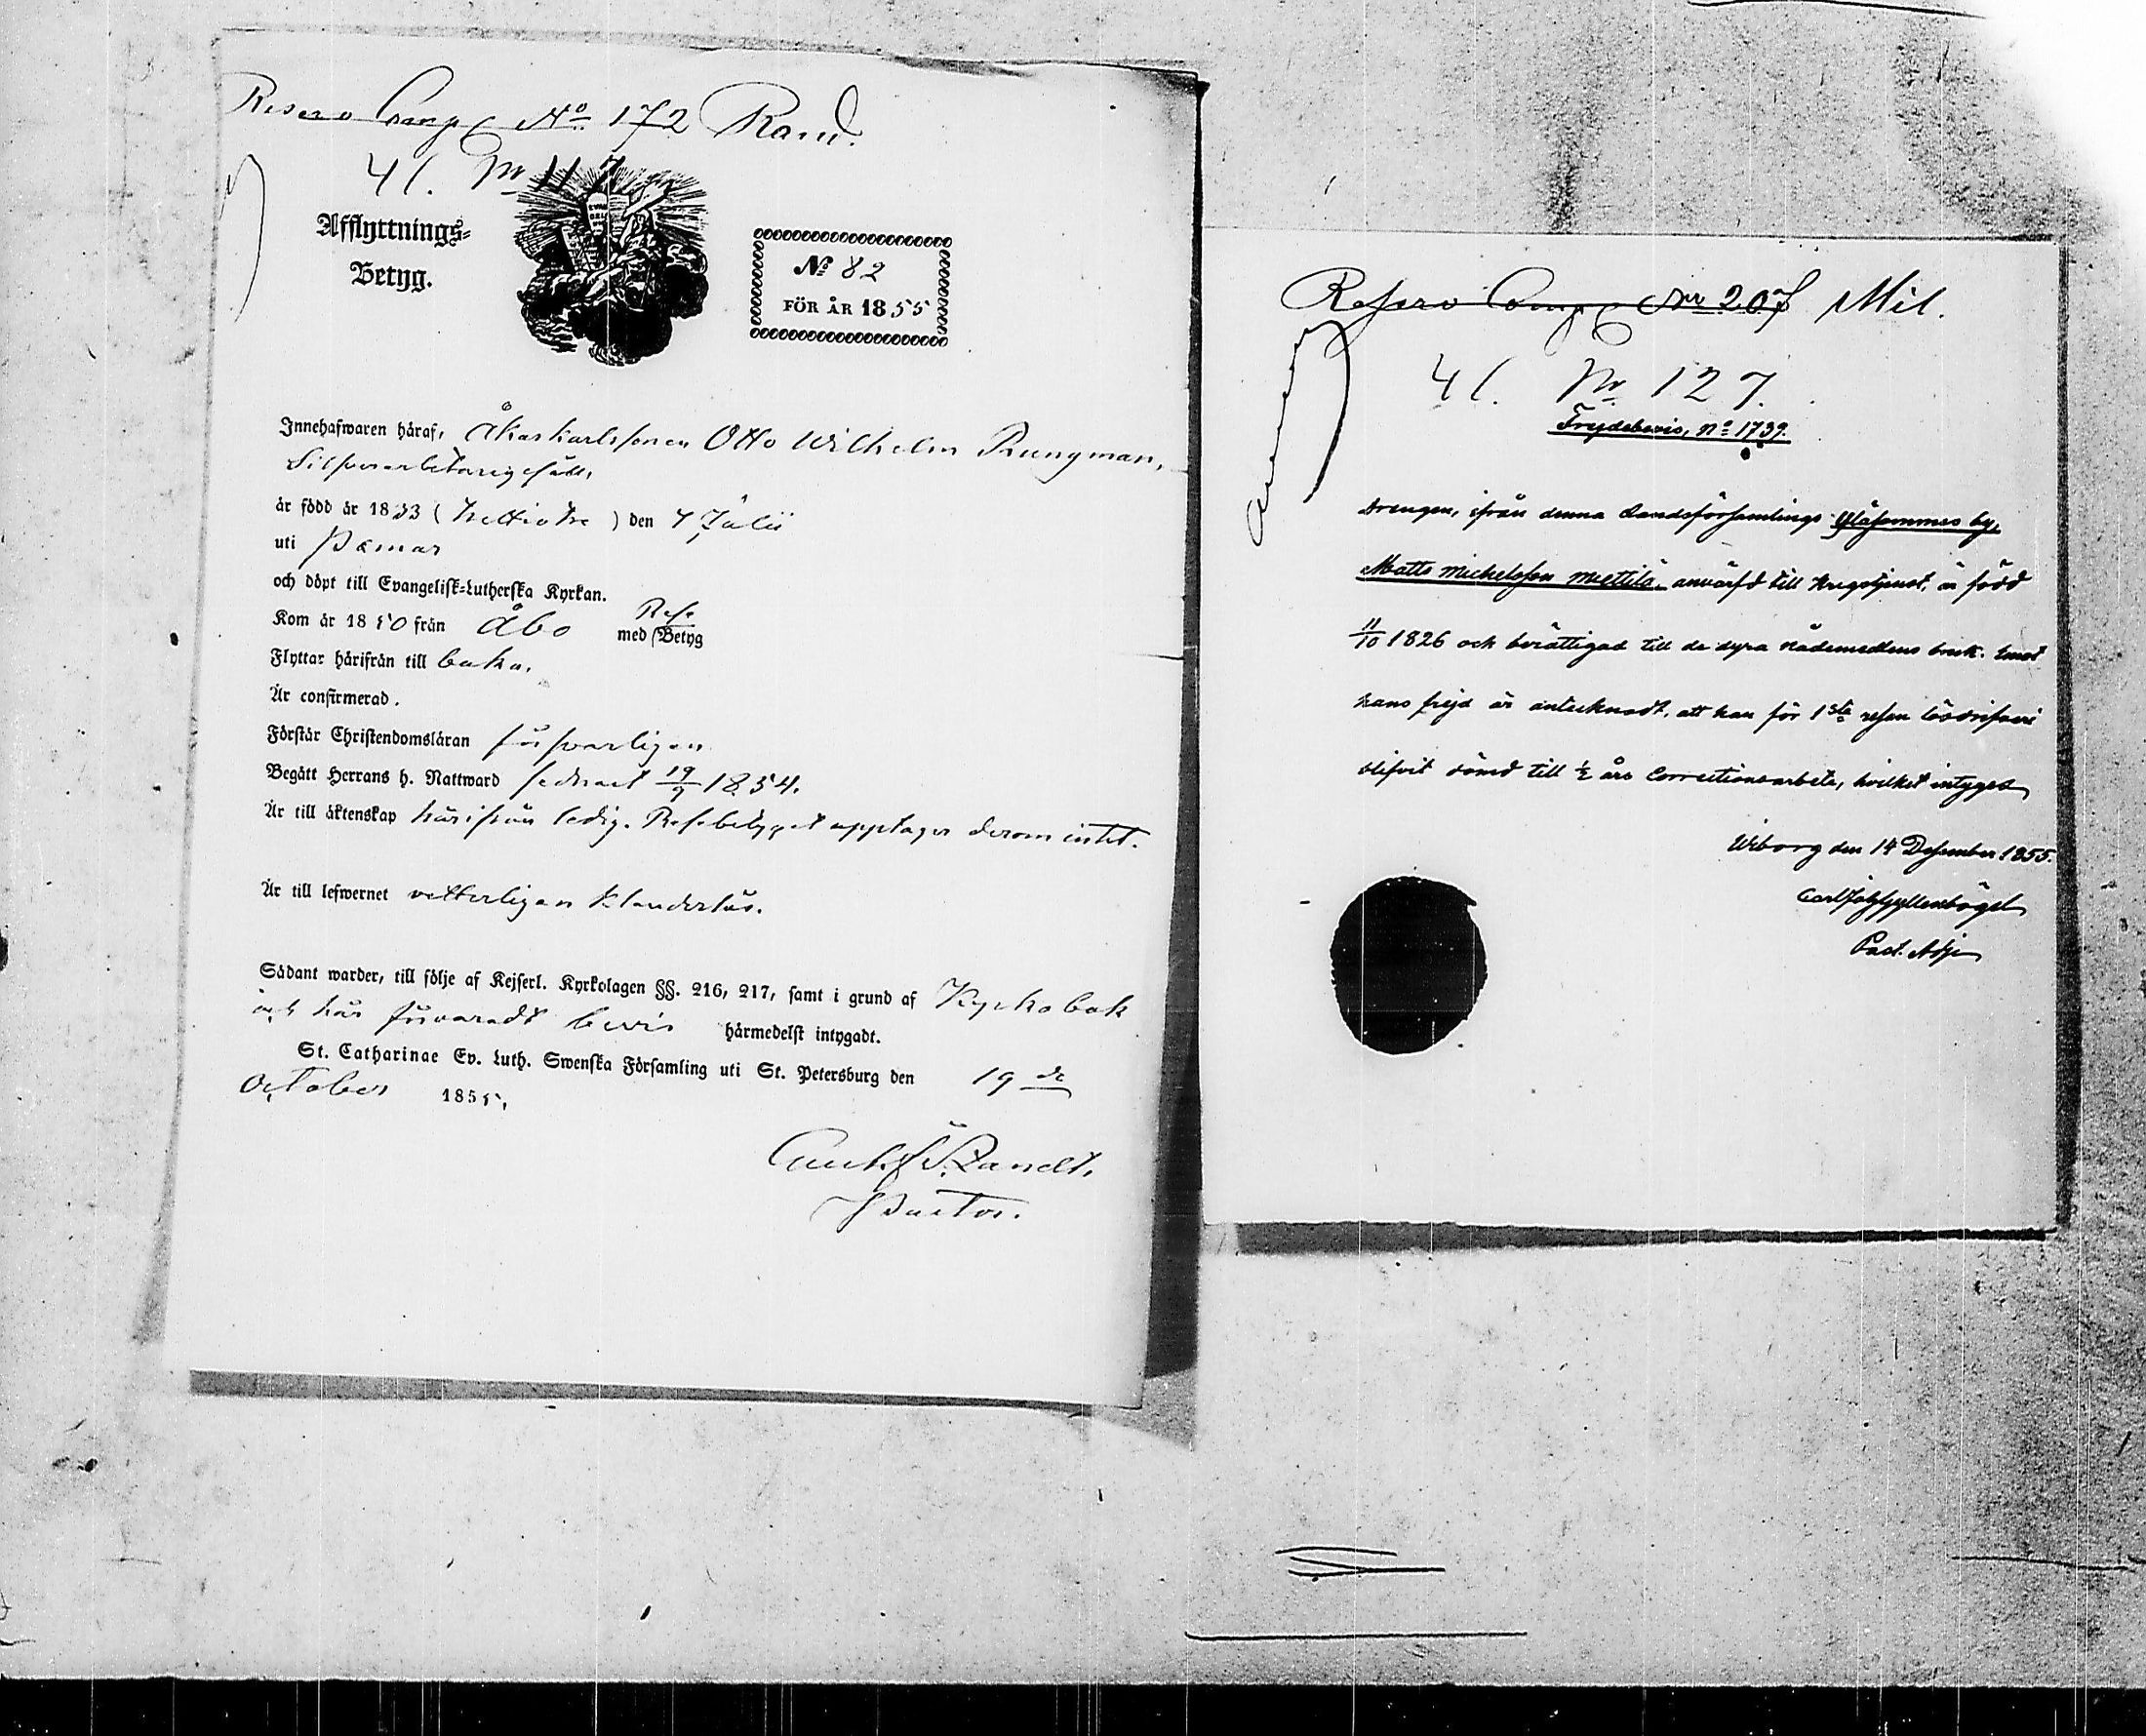 Reserv Comp. No 172 Rand.
41. Nr 117
Afflyttnings-
Betyg.
No 82
FÖR ÅR 1855
Innehafwaren häraf, Åkarkarlssonen Otto Wilhelm Rungman,
Silfverarbetaregesäll,
är född år 1833 (trettiotre) den 4 Julii
uti Pemar
och döpt till Evangelisk-Lutherska Kyrkan.
Kom år 1850 från Åbo med Rese Betyg
Flyttar härifrån till baka.
Är confirmerad.
Förstår Christendomsläran försvarligen
Begått Herrans h. Nattward sednast 19/9 1854.
Är till äktenskap härifrån ledig. Resebetyget upptager derom intet.
Är till lefwernet vetterligen klanderlös.
Sådant warder, till följe af Kejserl. Kyrkolagen §§. 216, 217, samt i grund af Kyrkobok
och här förvaradt bevis härmedelst intygadt.
St. Catharinae Ev. Luth. Swenska Församling uti St. Petersburg den 19de
October 1855.
Pastor.
Reserv Comp. Nr 207 Mil.
41. Nr 127.
Frejdebevis, No 1739.
Drengen, ifrån denna Landsförsamlings by,
Matts Michelsson Miettilä, anvärfd till krigstjenst, är född
11/10 1826 och berättigad till de dyra nådemedlens bruk. Emot
hans frejd är antecknadt, att han för 1sta resan lösdrifveri
blifvit dömd till ½ års Correctionsarbete, hvilket intygas
Wiborg den 14 December 1855.
Carl Joh Gyllenbögel
Past. Adj.